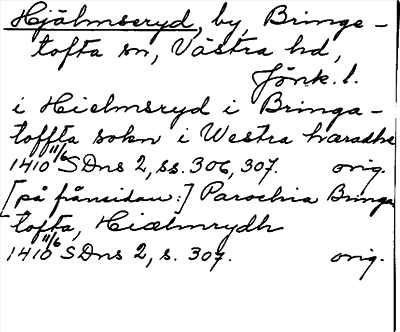 Hjälmseryd, by, Bringe-
tofta sn, Västra hd,
Jönk. l.
i Hielmsryd i Bringa-
toffta sokn i Westra hæradhe
1410 11/6 SDns 2, ss. 306, 307. orig.
[på frånsidan:] Parochia Bringa
tofta, Hiælmrydh
1410 11/6 SDns 2, s. 307. orig.